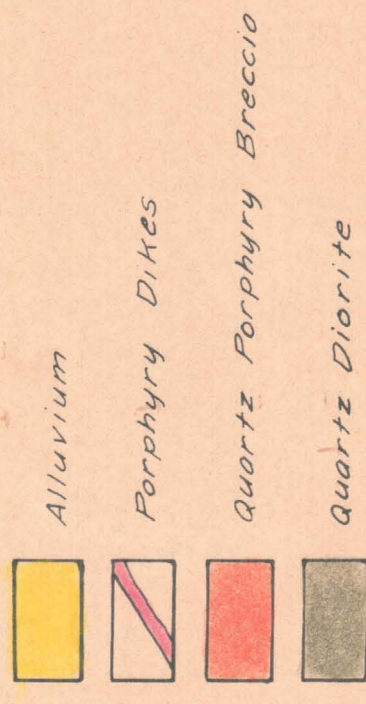 Alluvium
Porphyry Dikes
Quartz Porphyry Breccio
Quartz Diorite